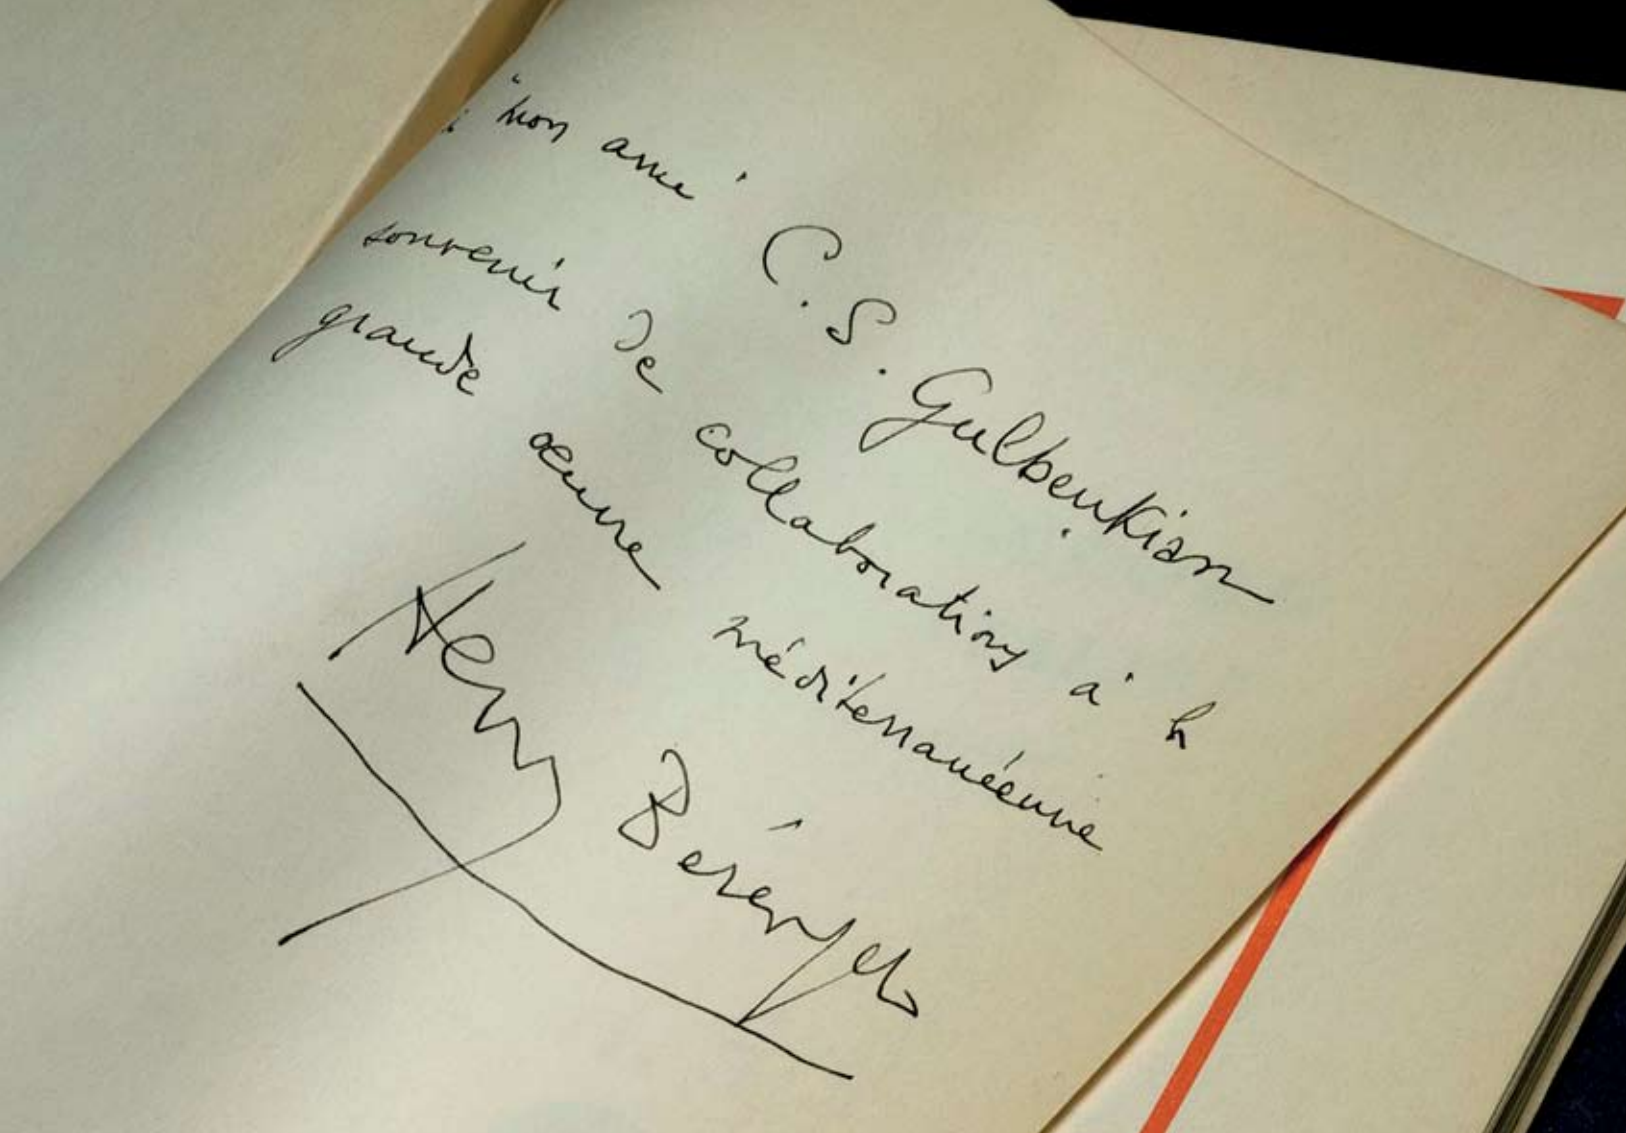 à mon ami C. S. Gulbenkian
souvenir de collaboration à la
grande œuvre méditerranéenne
Henry Bérenger